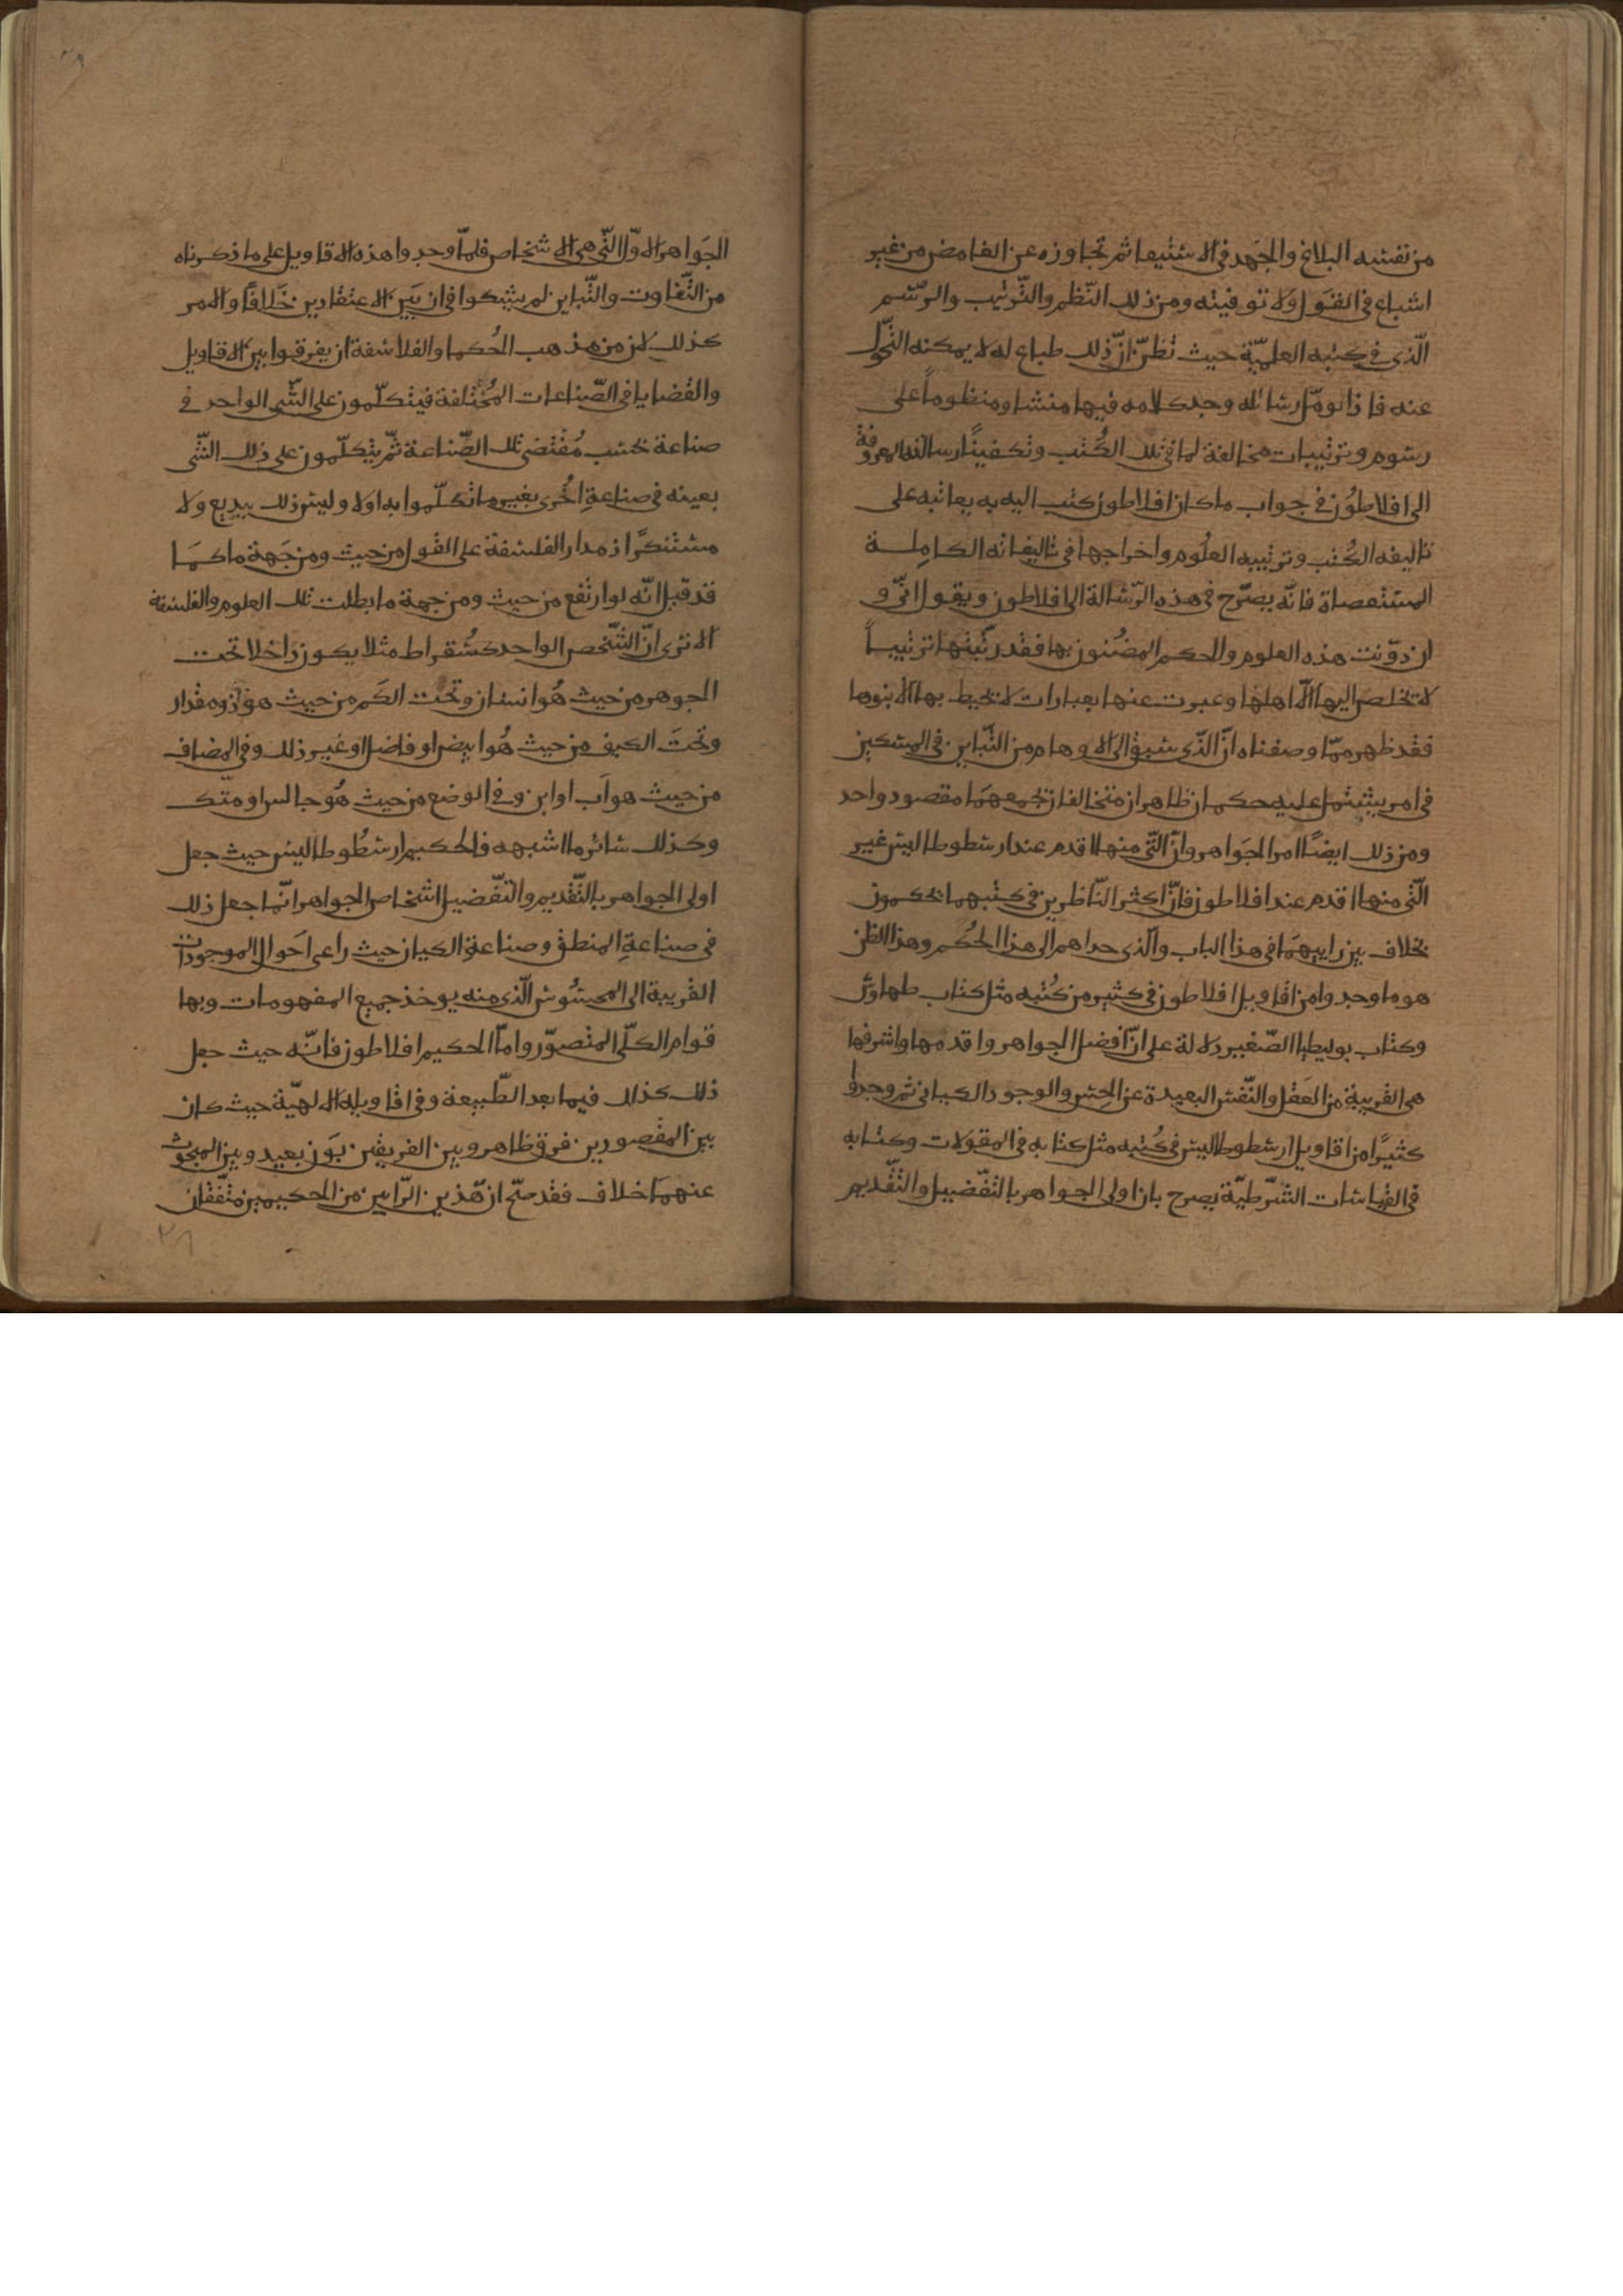 من نفسه البلاغ والجَهد في الاستيفا ثم تجاوزه عن الغامض من غير
اشباع في القول ولا توفيته ومن ذلك النّظم والتّرتيب والرّسم
الّذى في كتبه العلميّة حيث تظنّ انّ ذلك طباع له لا يمكنه التحوّل
عنه فاذا تومّل رسائله وجد كلامه فيها منشا ومنظوماً على
رسوم وترتيبات مخالفة لما في تلك الكُتب وتكفينا رسالته المعروفة
الى افلاطُون في جواب ما كان افلاطون كتب اليه به يعاتبه على
تاليفه الكُتب وترتيبه العلُوم واخراجها في تاليفاته الكامِلة
المستعصاة فانّه يصرّح في هذه الرّسالة الى افلاطون ويقول انّى و
ان دوّنت هذه العلوم والحكم المضنون بها فقد رتّبتها ترتيباً
لا تخلص اليها الّا اهلها وعبرت عنها بعبارات لا تحيط بها الا بنوها
فقد ظهر ممّا وصفناه انّ الّذى سبق الى الاوهام من التّباين في المسكين
في امر يشتمل عليه حكمان ظاهران متخالفان تجمعهمَا مقصود واحد
ومن ذلك ايضًا امر الجَواهر وانّ الّتى منها اقدم عند ارسطوطاليس غير
الّتى منها اقدم عند افلاطون فانّ اكثر النّاظرين في كتبهما يحكمون
بخلاف بين راييهمَا في هذا الباب والّذى حداهم الى هذا الحُكم وهذا الظن
هو ما وجدوا من اقاويل افلاطون في كثير من كُتبه مثل كتاب طهاوس
وكتاب بوليطيا الصّغير دلالة على انّ افضل الجواهر واقدمها واشرفها
هى القريبة من العَقل والنّفس البعيدة عن الحِس والوجود الكيانى ثم وجدوا
كثيرًا من اقاويل ارسطوطاليس في كُتبه مثل كتابه في المقولات وكتابه
في القياسات الشّرطيّة يصرح بان اولى الجواهر بالتّفضيل والتّقديم
الجَواهر الاوّل الّتى هى الاشخاص فلمّا وجدوا هذه الاقاويل على ما ذكرناه
من التّفاوت والتّباين لم يشكوا في ان بَين الاعتقادين خلافًا والامر
كذلك لان من مذهب الحُكما والفلاسفة ان يفرقوا بين الاقاويل
والقضايا في الصّناعات المُختلفة فيتكلّمون على الشّى الواحد في
صناعة بحسب مُقتضى تلك الصّناعة ثمّ يتكلّمون على ذلك الشّى
بعينه في صناعةٍ اُخرى بغير ما تكلّموا به اولا وليس ذلك ببديع ولا
مستنكرًا اذ مدار الفلسفة على القول من حيث ومن جَهة ما كمَا
قد قيل انّه لو ارتفع من حيث ومن جهة ما بطلت تلك العلوم والفلسفة
الا ترى انّ الشّخص الواحد كسُقراط مثلا يكون داخلا تحت
الجوهر من حيث هُو انسان وتحت الكَم من حيث هو ذو مقدار
وتحتَ الكيف من حيث هُو ابيض او فاضل او غير ذلك وفي المضاف
من حيث هو اَب او ابن وفي الوضع من حيث هُو جالس او متّك
وكذلك سائر ما اشبهه فالحكيم ارسطُوطاليس حيث جعل
اولى الجواهر بالتّقديم والتّفضيل اشخاص الجواهر انّما جعل ذلك
في صناعةِ المنطق وصناعة الكيان حيث راعى احَوال الموجودات
القريبة الى المحسُوس الّذى منه يوخذ جميع المفهومات وبها
قوام الكلّى المتصوّر وامّا الحكيم افلاطون فانّه حيث جعل
ذلك كذلك فيما بعد الطّبيعة وفي اقاويله الالهيّة حيث كان
بين المقصورين فرق ظاهر وبين الفريقين بَون بعيد وبين المبحوث
عنهمَا خلاف فقد صحّ ان هّذين الرّايين من الحكيمين متّفقان
٢٨